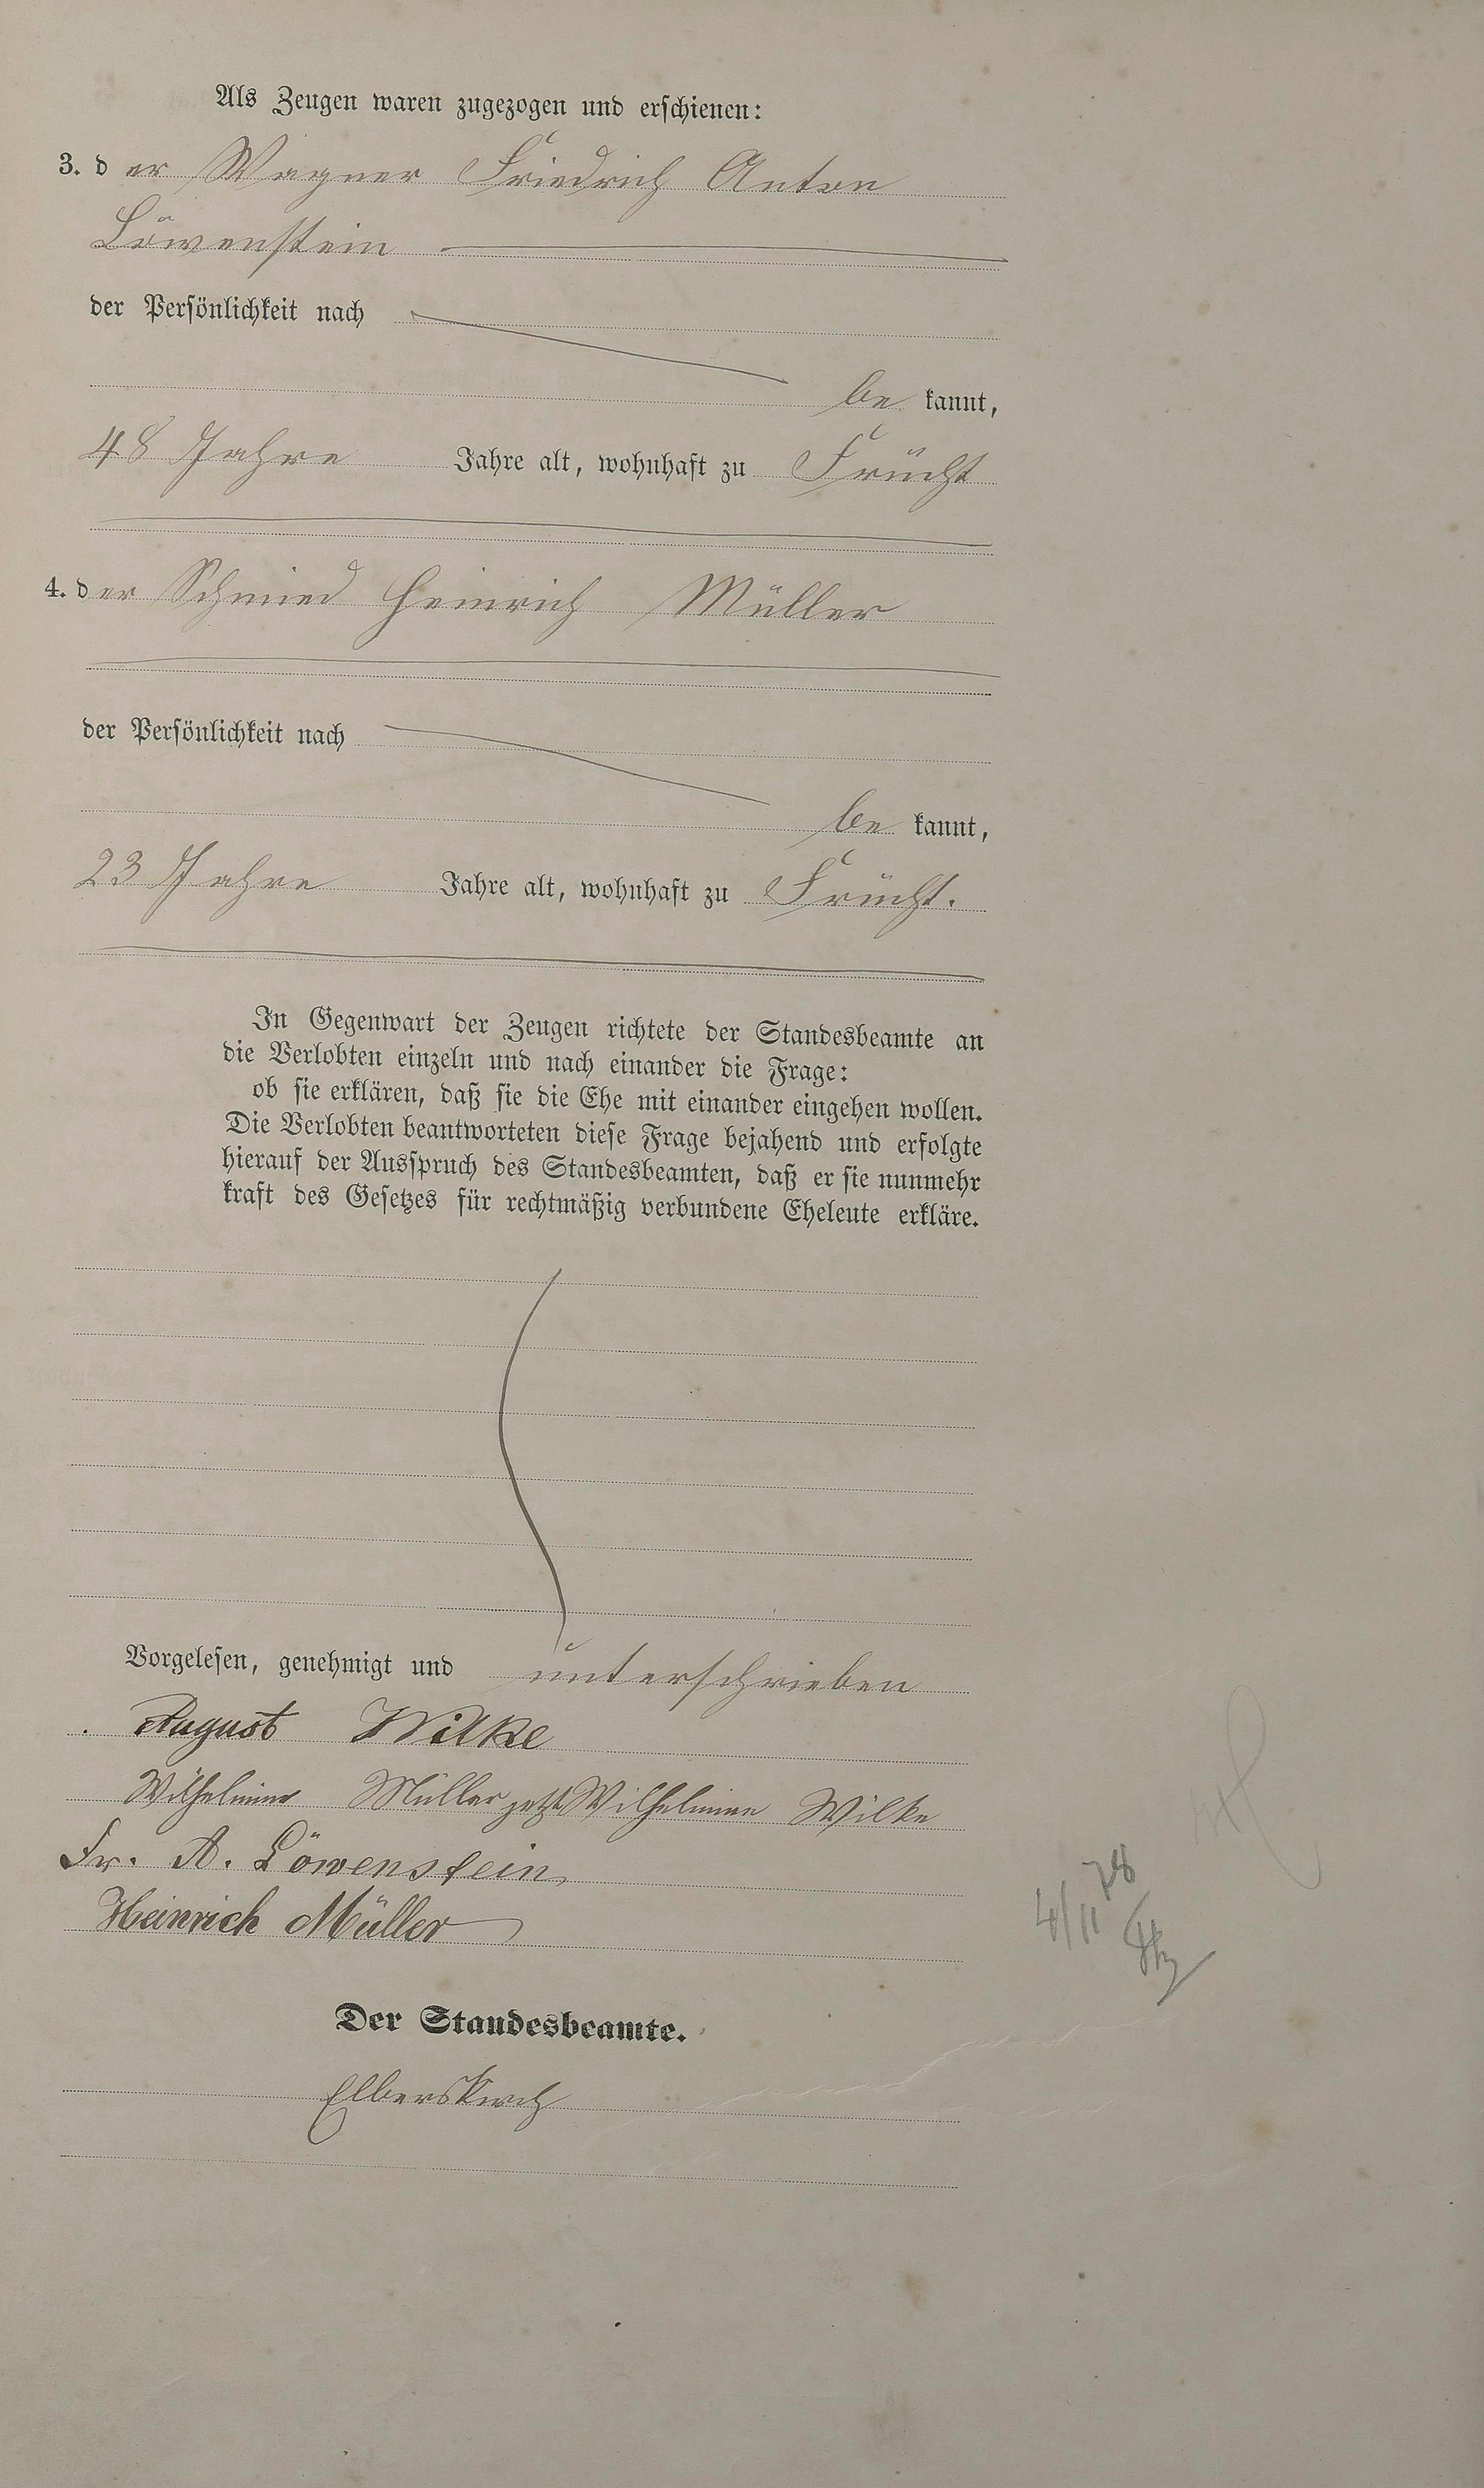 Als Zeugen waren zugezogen und erschienen:
3. der Wagner Friedrich Anton
Löwenstein
der Persönlichkeit nach
be kannt,
48 Jahre Jahre alt, wohnhaft zu Frücht
4. der Schmied Heinrich Müller
der Persönlichkeit nach
be kannt,
23 Jahre Jahre alt, wohnhaft zu Frücht.
In Gegenwart der Zeugen richtete der Standesbeamte an
die Verlobten einzeln und nach einander die Frage:
ob sie erklären, daß sie die Ehe mit einander eingehen wollen.
Die Verlobten beantworteten diese Frage bejahend und erfolgte
hierauf der Ausspruch des Standesbeamten, daß er sie nunmehr
kraft des Gesetzes für rechtmäßig verbundene Eheleute erkläre.
Vorgelesen, genehmigt und unterschrieben
August Wilke
Wilhelmine Müller jetzt Wilhelmine Wilke
Fr. A. Löwenstein
Heinrich Müller
4/11 78
Der Standesbeamte.
Elberskirch